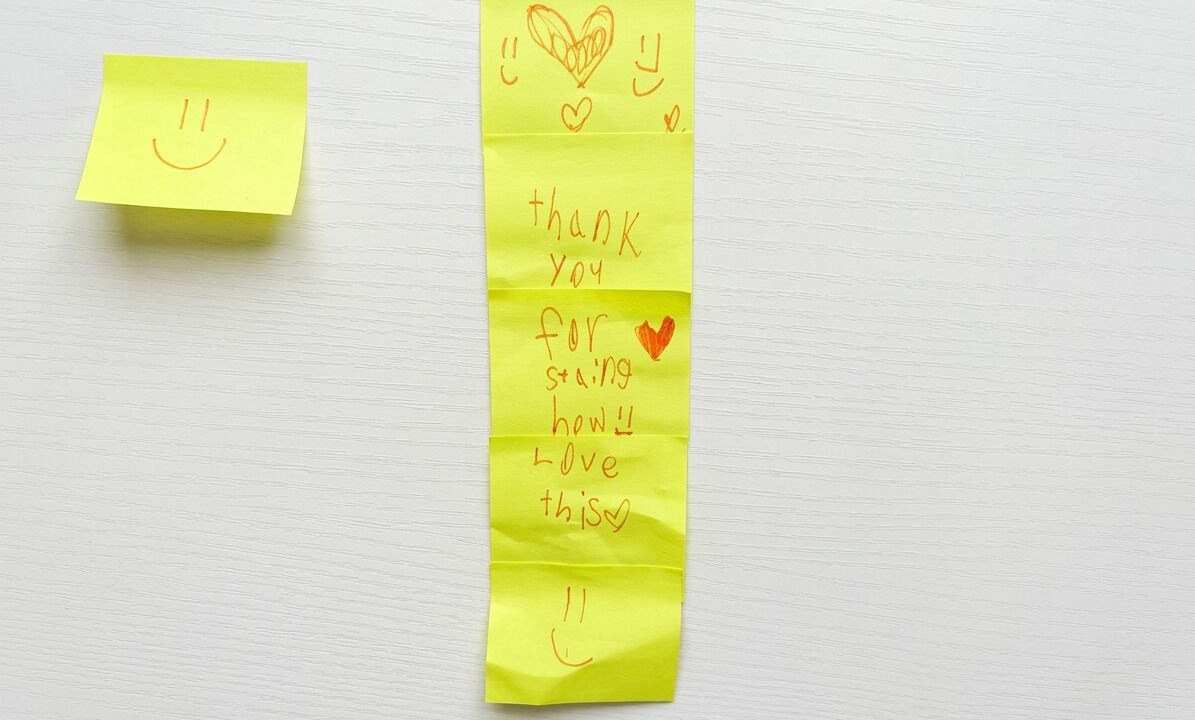 thank
you
for
staing
how
Love
this